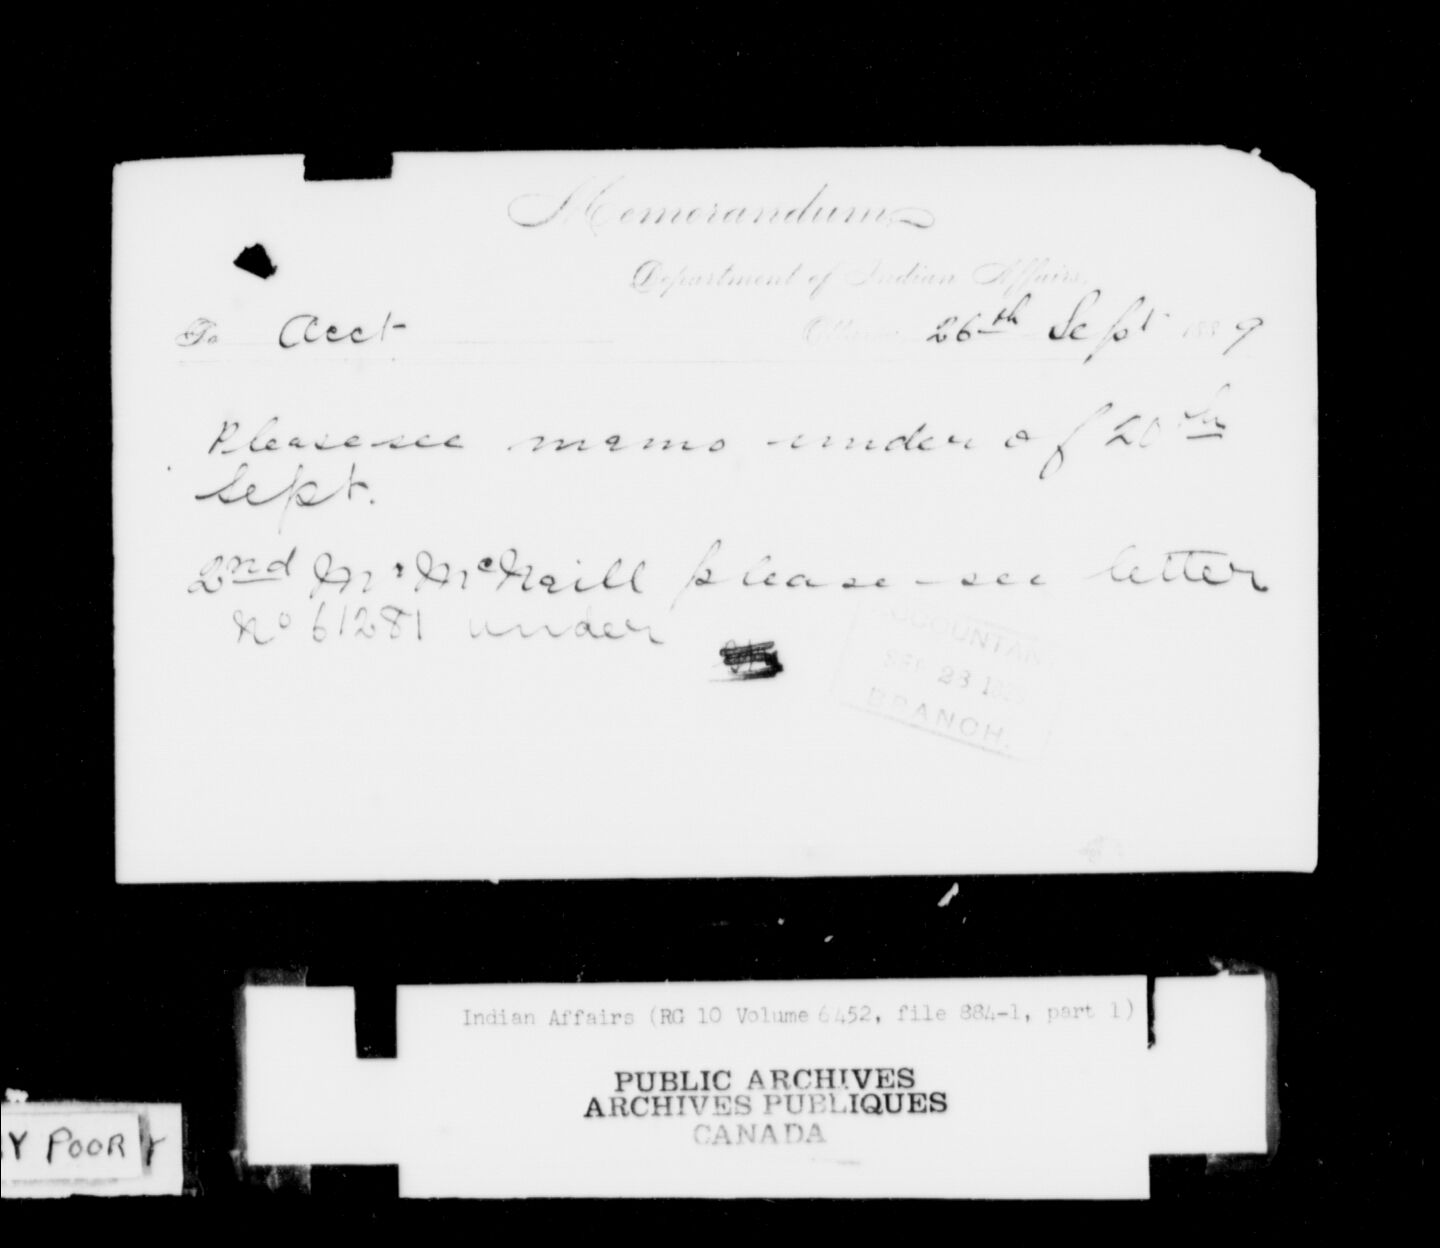 Memorandum
Department of Indian Affairs,
To Acct Ottawa, 26th Sept 1889
Please see memo under of 20th
Sept.
2nd Mr McNeill please see letter
No 61281 under
ACCOUNTANT
SEP 23 1889
BRANCH.
Indian Affairs (RG 10 Volume 6452, file 884-1, part 1)
PUBLIC ARCHIVES
ARCHIVES PUBLIQUES
CANADA
Y POOR